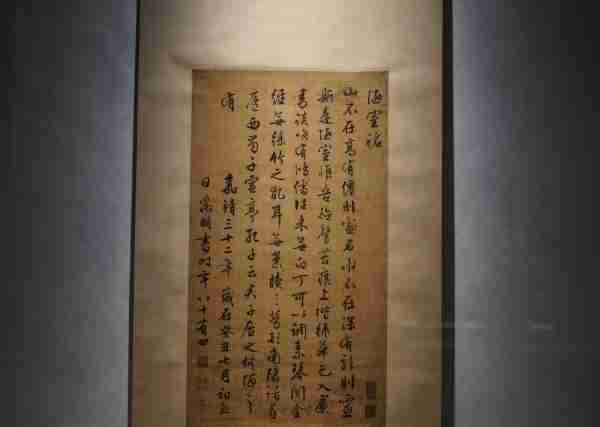 陋室銘
山不在高有僊則名水不在深有龍則靈
斯是陋室惟吾德馨苔痕上階綠草色入簾
青談笑有鴻儒往來無白丁可以調素琴閱金
經無絲竹之亂耳無案牘之勞形南陽諸葛
廬西蜀子雲亭孔子云君子居之何陋之
有
嘉靖三十二年歲在癸丑七月初
日徵明書時年八十有四